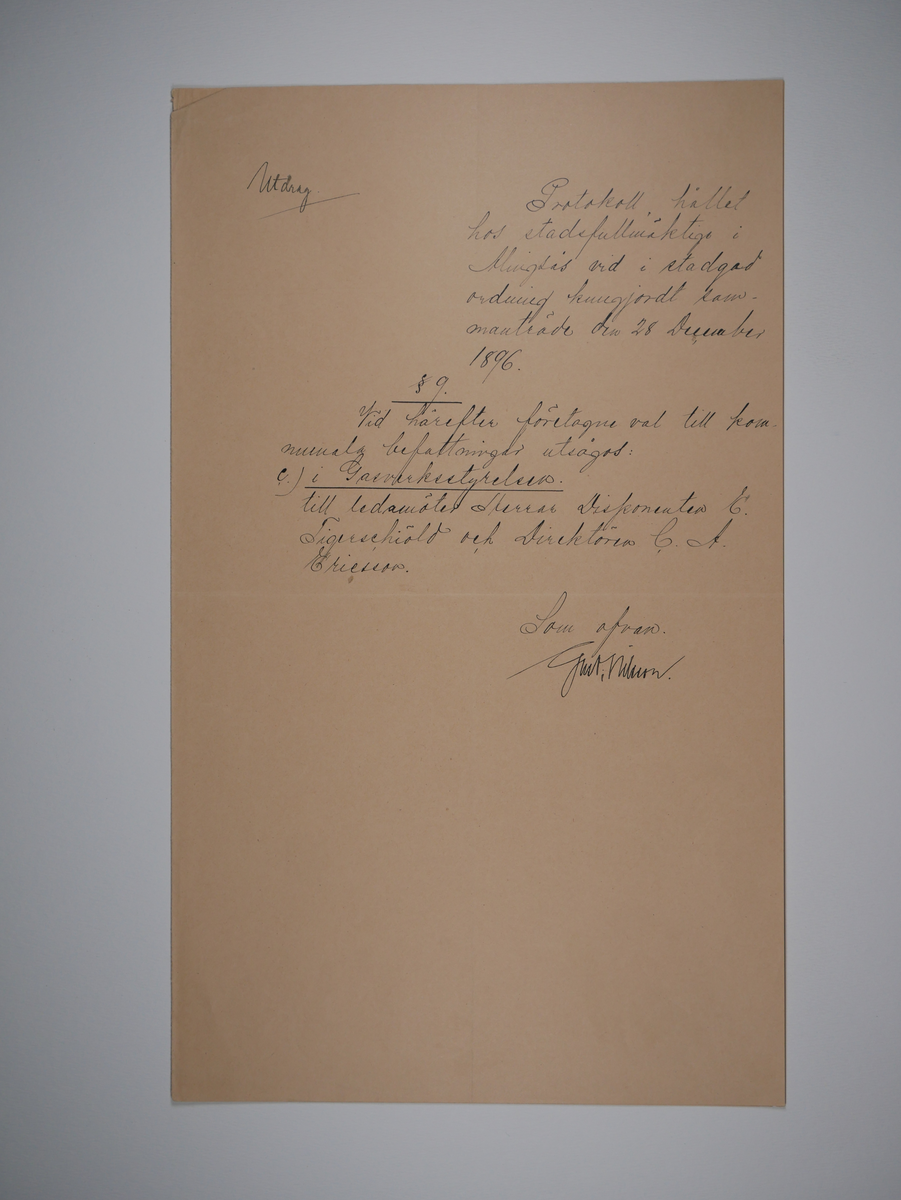 Utdrag
Protokoll, hållet
hos stadsfullmäktige i
Alingsås vid i stadgad
ordning kungjordt sam-
manträde den 28 December
1896.
§ 9.
Vid härefter företagne val till kom-
munala befattningar utsågos:
c.) i Gasverksstyrelsen.
till ledamöter Herrar Disponenten E.
Tigerschiöld och Direktören C. A.
Ericsson.
Som ofvan.
Gust. Nilsson.